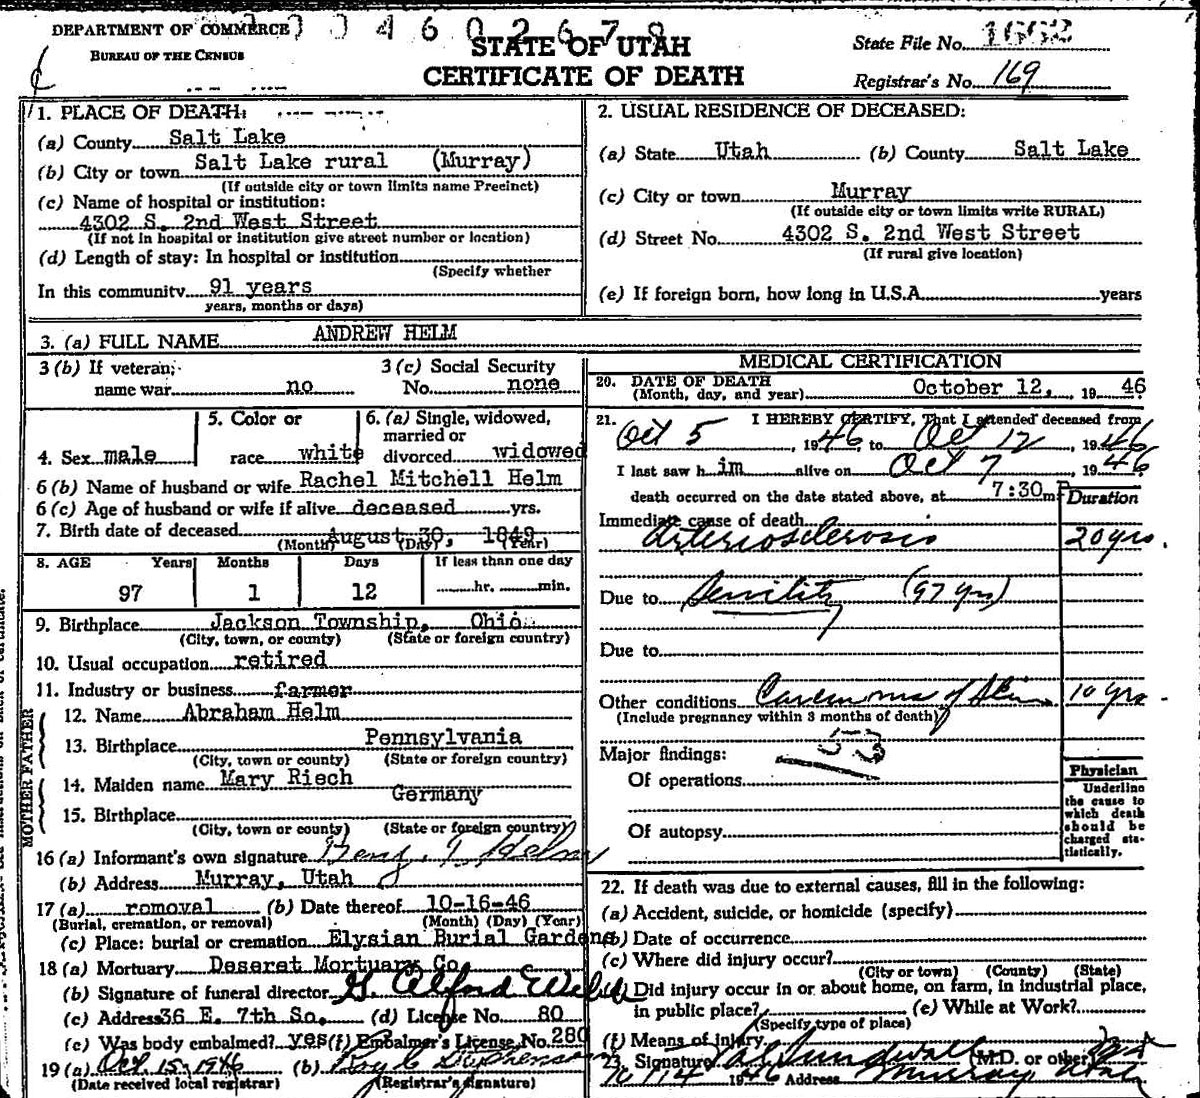 DEPARTMENT OF COMMERCE
BUREAU OF THE CENSUS
STATE OF UTAH
CERTIFICATE OF DEATH
State File No. 1662
Registrar's No. 169
1. PLACE OF DEATH:
(a) County Salt Lake
(b) City or town Salt Lake rural (Murray)
(If outside city or town limits name Precinct)
(c) Name of hospital or institution:
4302 S. 2nd West Street
(If not in hospital or institution give street number or location)
(d) Length of stay: In hospital or institution
(Specify whether
In this community 91 years
years, months or days)
2. USUAL RESIDENCE OF DECEASED:
(a) State Utah (b) County Salt Lake
(c) City or town Murray
(If outside city or town limits write RURAL)
(d) Street No. 4302 S. 2nd West Street
(If rural give location)
(e) If foreign born, how long in U.S.A. years
3. (a) FULL NAME ANDREW HELM
3 (b) If veteran, name war no
3 (c) Social Security No. none
4. Sex male
5. Color or race white
6. (a) Single, widowed, married or divorced widowed
6 (b) Name of husband or wife Rachel Mitchell Helm
6 (c) Age of husband or wife if alive deceased yrs.
7. Birth date of deceased August 30, 1849
(Month) (Day) (Year)
8. AGE Years Months Days If less than one day
97 1 12 hr. min.
9. Birthplace Jackson Township, Ohio
(City, town, or county) (State or foreign country)
10. Usual occupation retired
11. Industry or business farmer
FATHER
12. Name Abraham Helm
13. Birthplace Pennsylvania
(City, town or county) (State or foreign country)
MOTHER
14. Maiden name Mary Riech
15. Birthplace Germany
(City, town or county) (State or foreign country)
16 (a) Informant's own signature Helm
(b) Address Murray, Utah
17 (a) removal (b) Date thereof 10-16-46
(Burial, cremation, or removal) (Month) (Day) (Year)
(c) Place: burial or cremation Elysian Burial Gardens
18 (a) Mortuary Deseret Mortuary Co
(b) Signature of funeral director
(c) Address 36 E. 7th So. (d) License No. 80
(e) Was body embalmed? yes (f) Embalmer's License No. 280
19 (a) Oct. 15, 1946 (b)
(Date received local registrar) (Registrar's signature)
MEDICAL CERTIFICATION
20. DATE OF DEATH October 12, 19 46
(Month, day, and year)
21. I HEREBY CERTIFY, That I attended deceased from
Oct 5, 1946 to Oct 12, 1946
I last saw h im alive on Oct 7 1946
death occurred on the date stated above, at 7:30 m P
Duration
Immediate cause of death
Arteriosclerosis 20 yrs.
Due to Senility (97 yrs)
Due to
Other conditions Carcinoma of Skin 10 yrs
(Include pregnancy within 3 months of death)
53
Major findings:
Of operations
Of autopsy
Physician
Underline the cause to which death should be charged statistically.
22. If death was due to external causes, fill in the following:
(a) Accident, suicide, or homicide (specify)
(b) Date of occurrence
(c) Where did injury occur?
(City or town) (County) (State)
(d) Did injury occur in or about home, on farm, in industrial place,
in public place? (e) While at Work?
(Specify type of place)
(f) Means of injury
23. Signature Sundwall (M.D. or other)
10/14 1946 Address Murray Utah